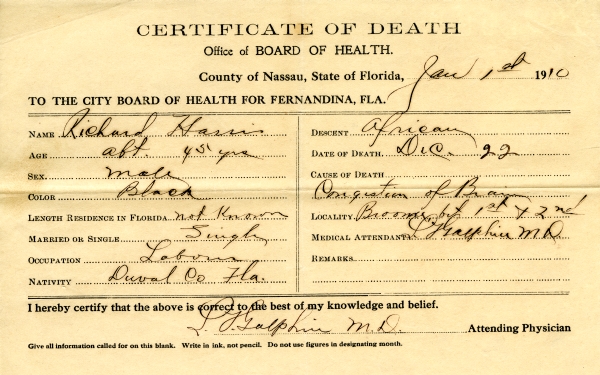 CERTIFICATE OF DEATH
Office of BOARD OF HEALTH.
County of Nassau, State of Florida, Jan 1st 1910
TO THE CITY BOARD OF HEALTH FOR FERNANDINA, FLA.
NAME Richard Harris
AGE abt. 45 yrs
SEX. Male
COLOR Black
LENGTH RESIDENCE IN FLORIDA. not Known
MARRIED OR SINGLE Single
OCCUPATION Laborer
NATIVITY Duval Co Fla.
DESCENT African
DATE OF DEATH. Dec. 22
CAUSE OF DEATH
Congestion of Brain
LOCALITY. Broome, by 1st & 2nd
MEDICAL ATTENDANT. Galphin M.D.
REMARKS
I hereby certify that the above is correct to the best of my knowledge and belief.
Galphin M.D. Attending Physician
Give all information called for on this blank. Write in ink, not pencil. Do not use figures in designating month.